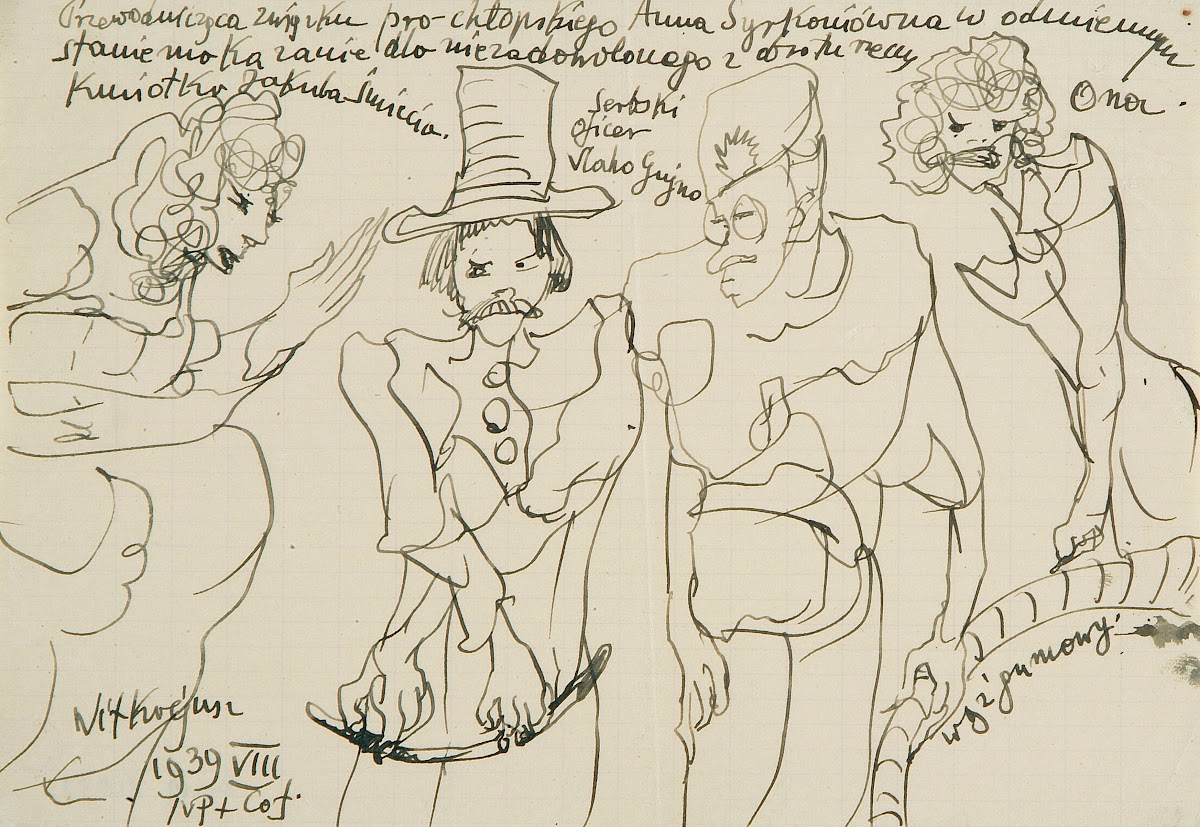 Przewodnicząca związku pro-chłopskiego Anna Syrkoniówna w odmiennym
stanie na kazanie do niezadowolonego z obrotu rzeczy
Kmiotka Jakuba Śmiecia.
Serbski
oficer
Vlaho Gnjno
Ona.
wąż gumowy!
Witkacjusz
1939 VIII
NP + Cof.